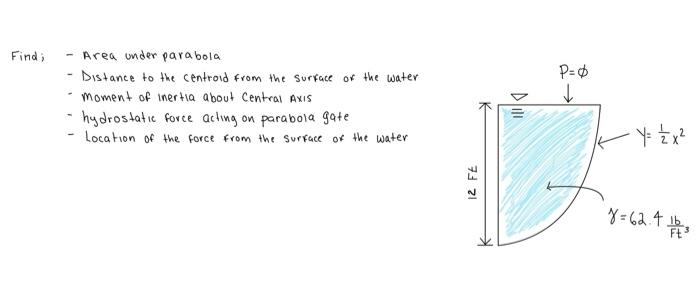 Find; - Area under parabola
- Distance to the centroid from the surface of the water
- moment of inertia about Central Axis
- hydrostatic force acting on parabola gate
- Location of the force from the surface of the water
P=∅
y= 1/2 x²
12 Ft
γ=62.4 lb/Ft³